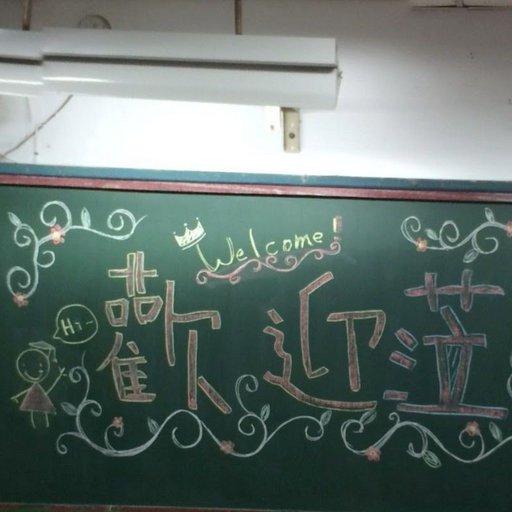 Welcome!
Hi~
歡迎蒞